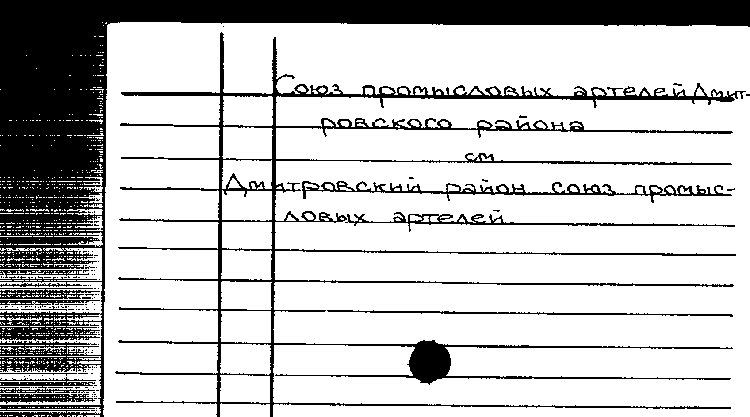 Союз промысловых артелей Дмит-
ровского района
см.
Дмитровский район союз промыс-
ловых артелей.